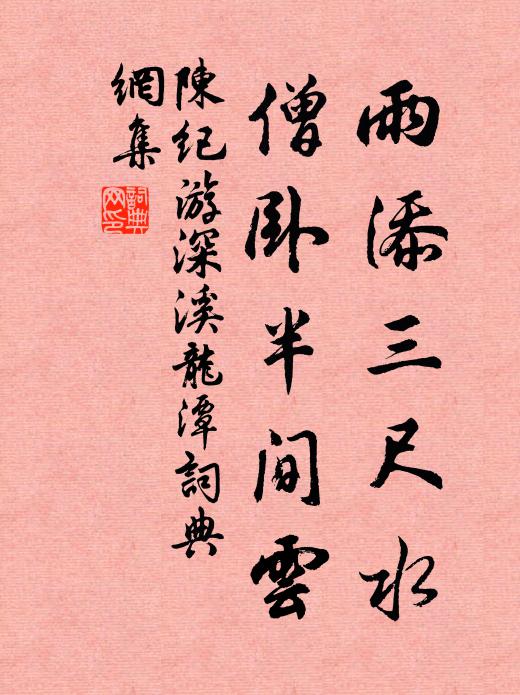 雨添三尺水
僧卧半间雲
陳纪游深溪龍潭詞典
網集
詞典
网印